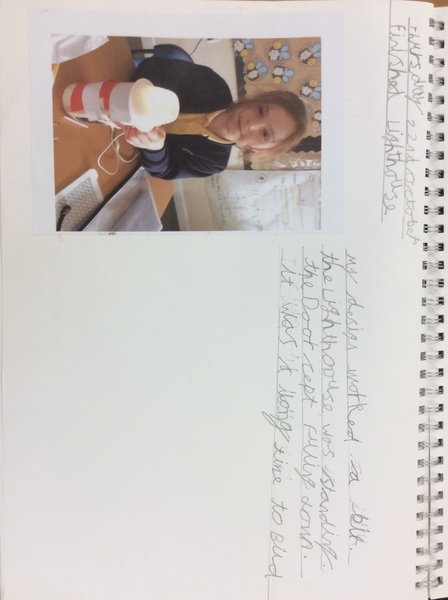 Thursday 22nd october
Finished Lighthouse.
My design worked
the Lighthoouse was standing.
the Door cept fuling down.
It was a long time to Blid